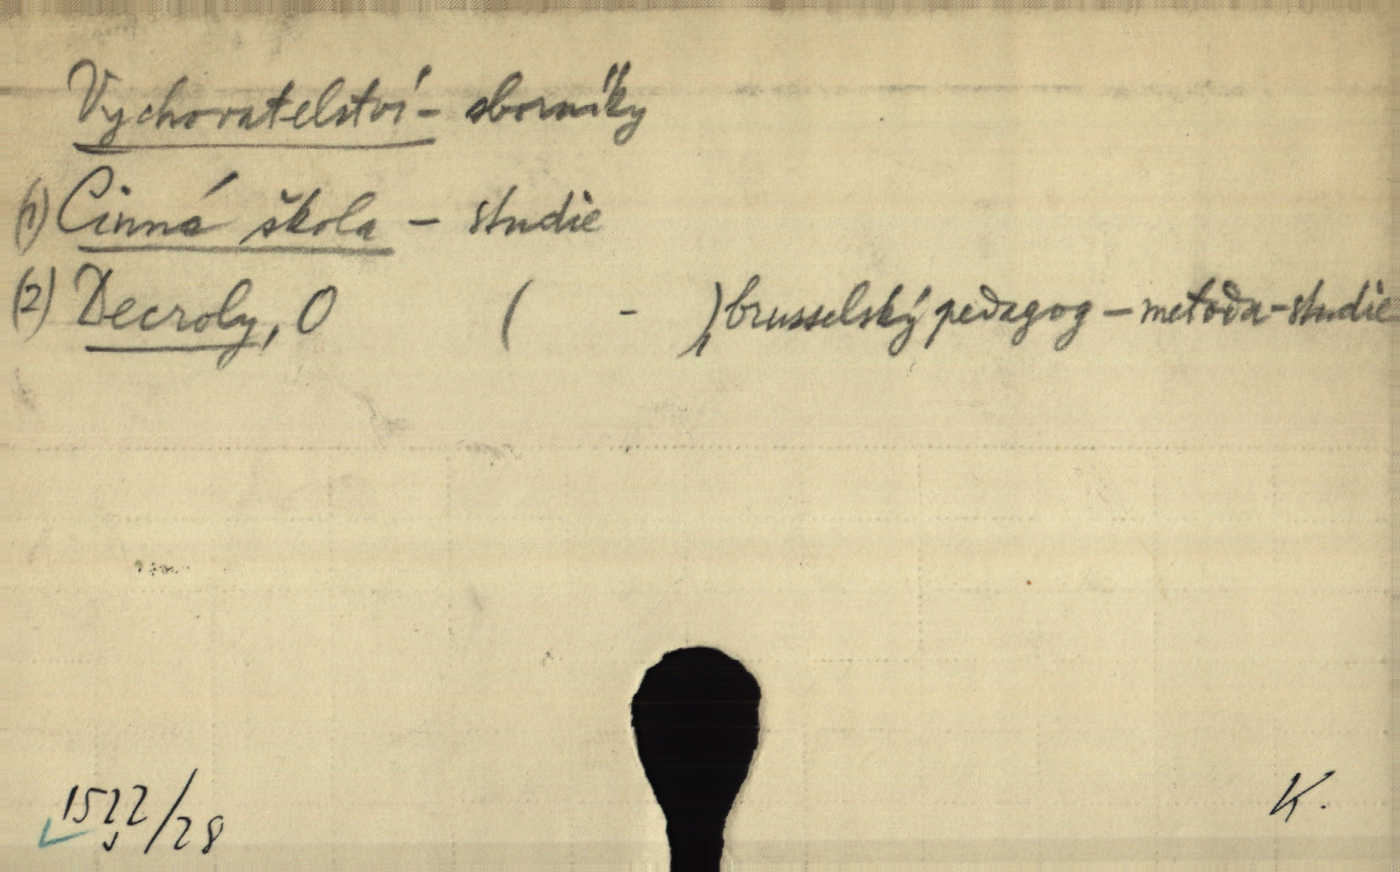 Vychovatelství - sborníky
(1) Činná škola - studie
(2) Decroly, O ( - ), brusselský pedagog - metoda - studie
1522/28
K.